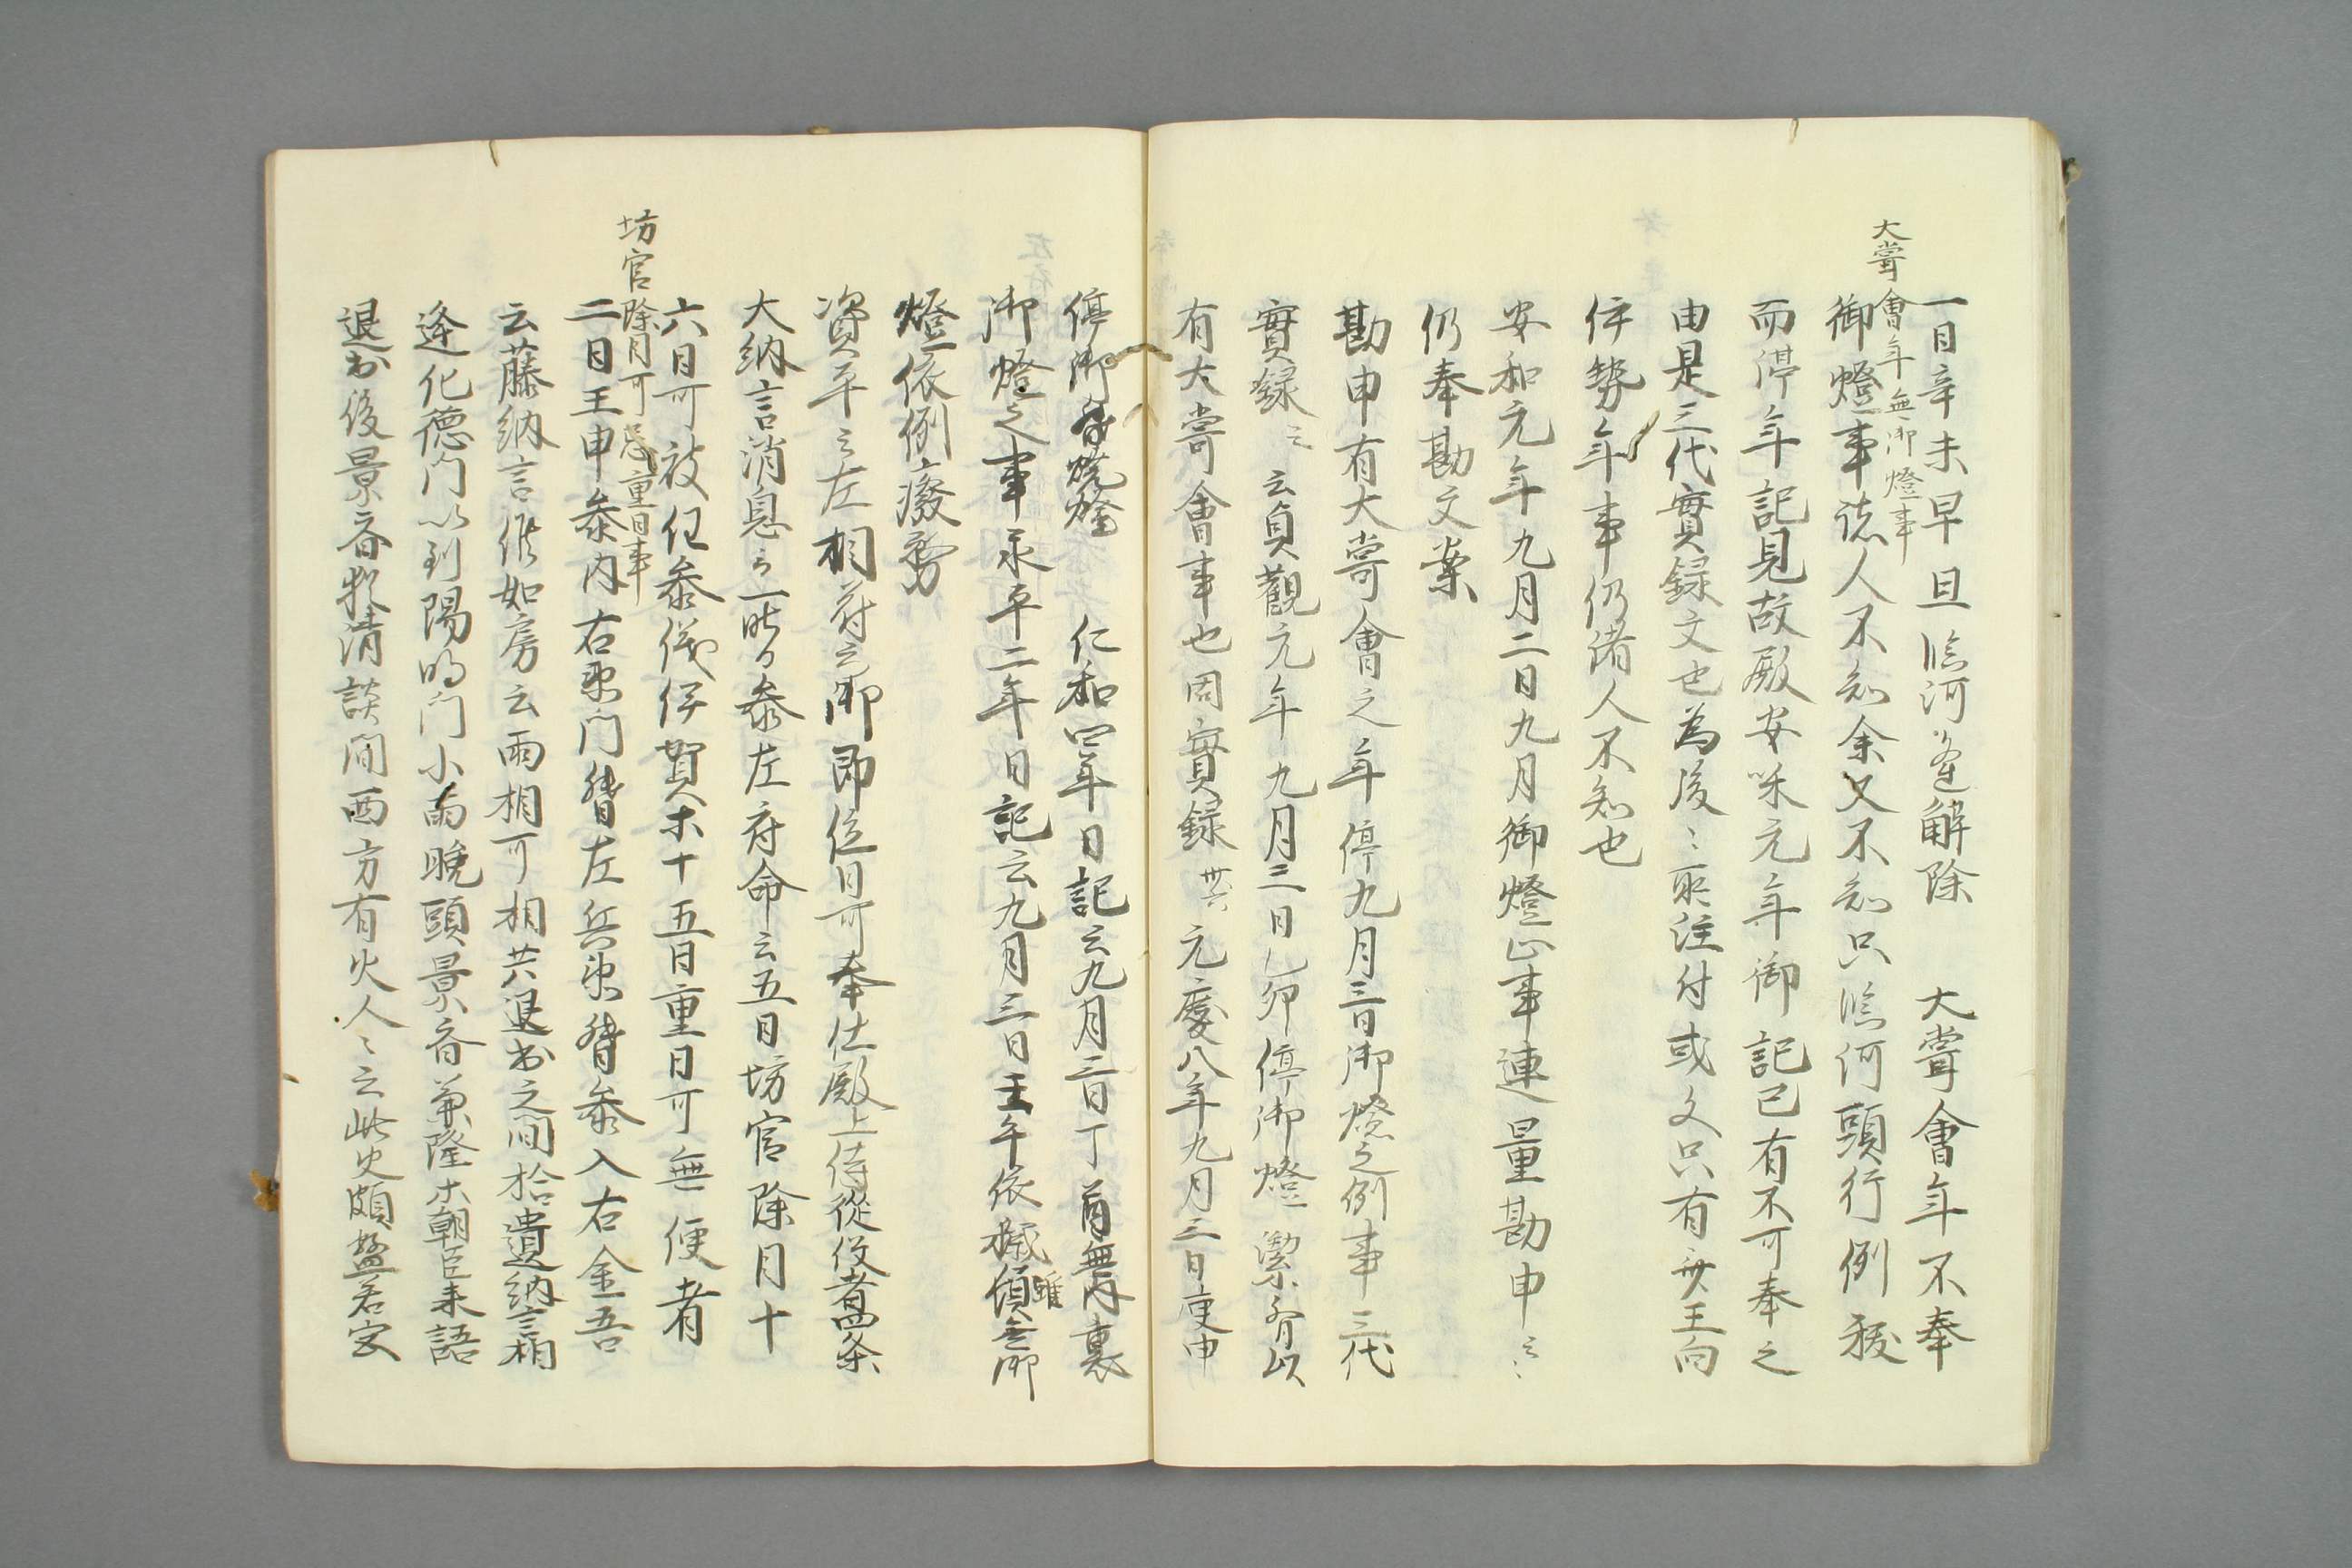 大嘗會年無御燈事
一日辛未早旦臨河邊解除　大嘗會年不奉
御燈事諸人不知余又不知只臨河頭行例祓
而済年記見故殿安和元年御記已有不可奉之
由是三代實録文也為後々所注付或文只有無王向
伊勢年事仍諸人不知也
安和元年九月二日九月御燈止事連量勘申云々
仍奉勘文案
勘申有大嘗會之年停九月三日御燈之例事三代
實録云々云貞觀元年九月三日乙卯停御燈潔齋以
有大嘗會事也同實録卌六元慶八年九月三日庚申
停御燈　仁和四年日記云九月三日丁酉無内裏
御燈之事承平二年日記云九月三日壬午依穢雖無御
燈依例廢務
資平云左相府云御即位日可奉仕殿上侍從役者四条
大納言消息云一昨日参左府命云五日坊官除月十
六日可被任参議伊賀等十五日重日可無便者
坊官除月可忌重日事
二日壬申参内右衛門督左兵衛督参入右金吾
云藤納言催如房云雨相可相共退出之間拾遺納言相
逢化德門以到陽明門小雨晚頭景斉兼隆等朝臣来語
退出後景斉
清談間西方有火人々云此火頗盛若定